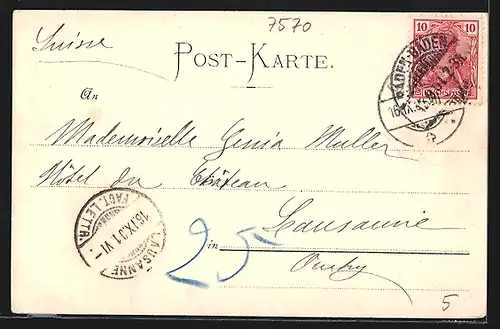 7570
10 10
Suisse
POST-KARTE.
BADEN-BADEN
An
Mademoiselle Genia Muller
Hôtel du Château
Lausanne
in
Ouchy
LAUSANNE
16.IX.01.VI-
FACT. LETTR.
25
5